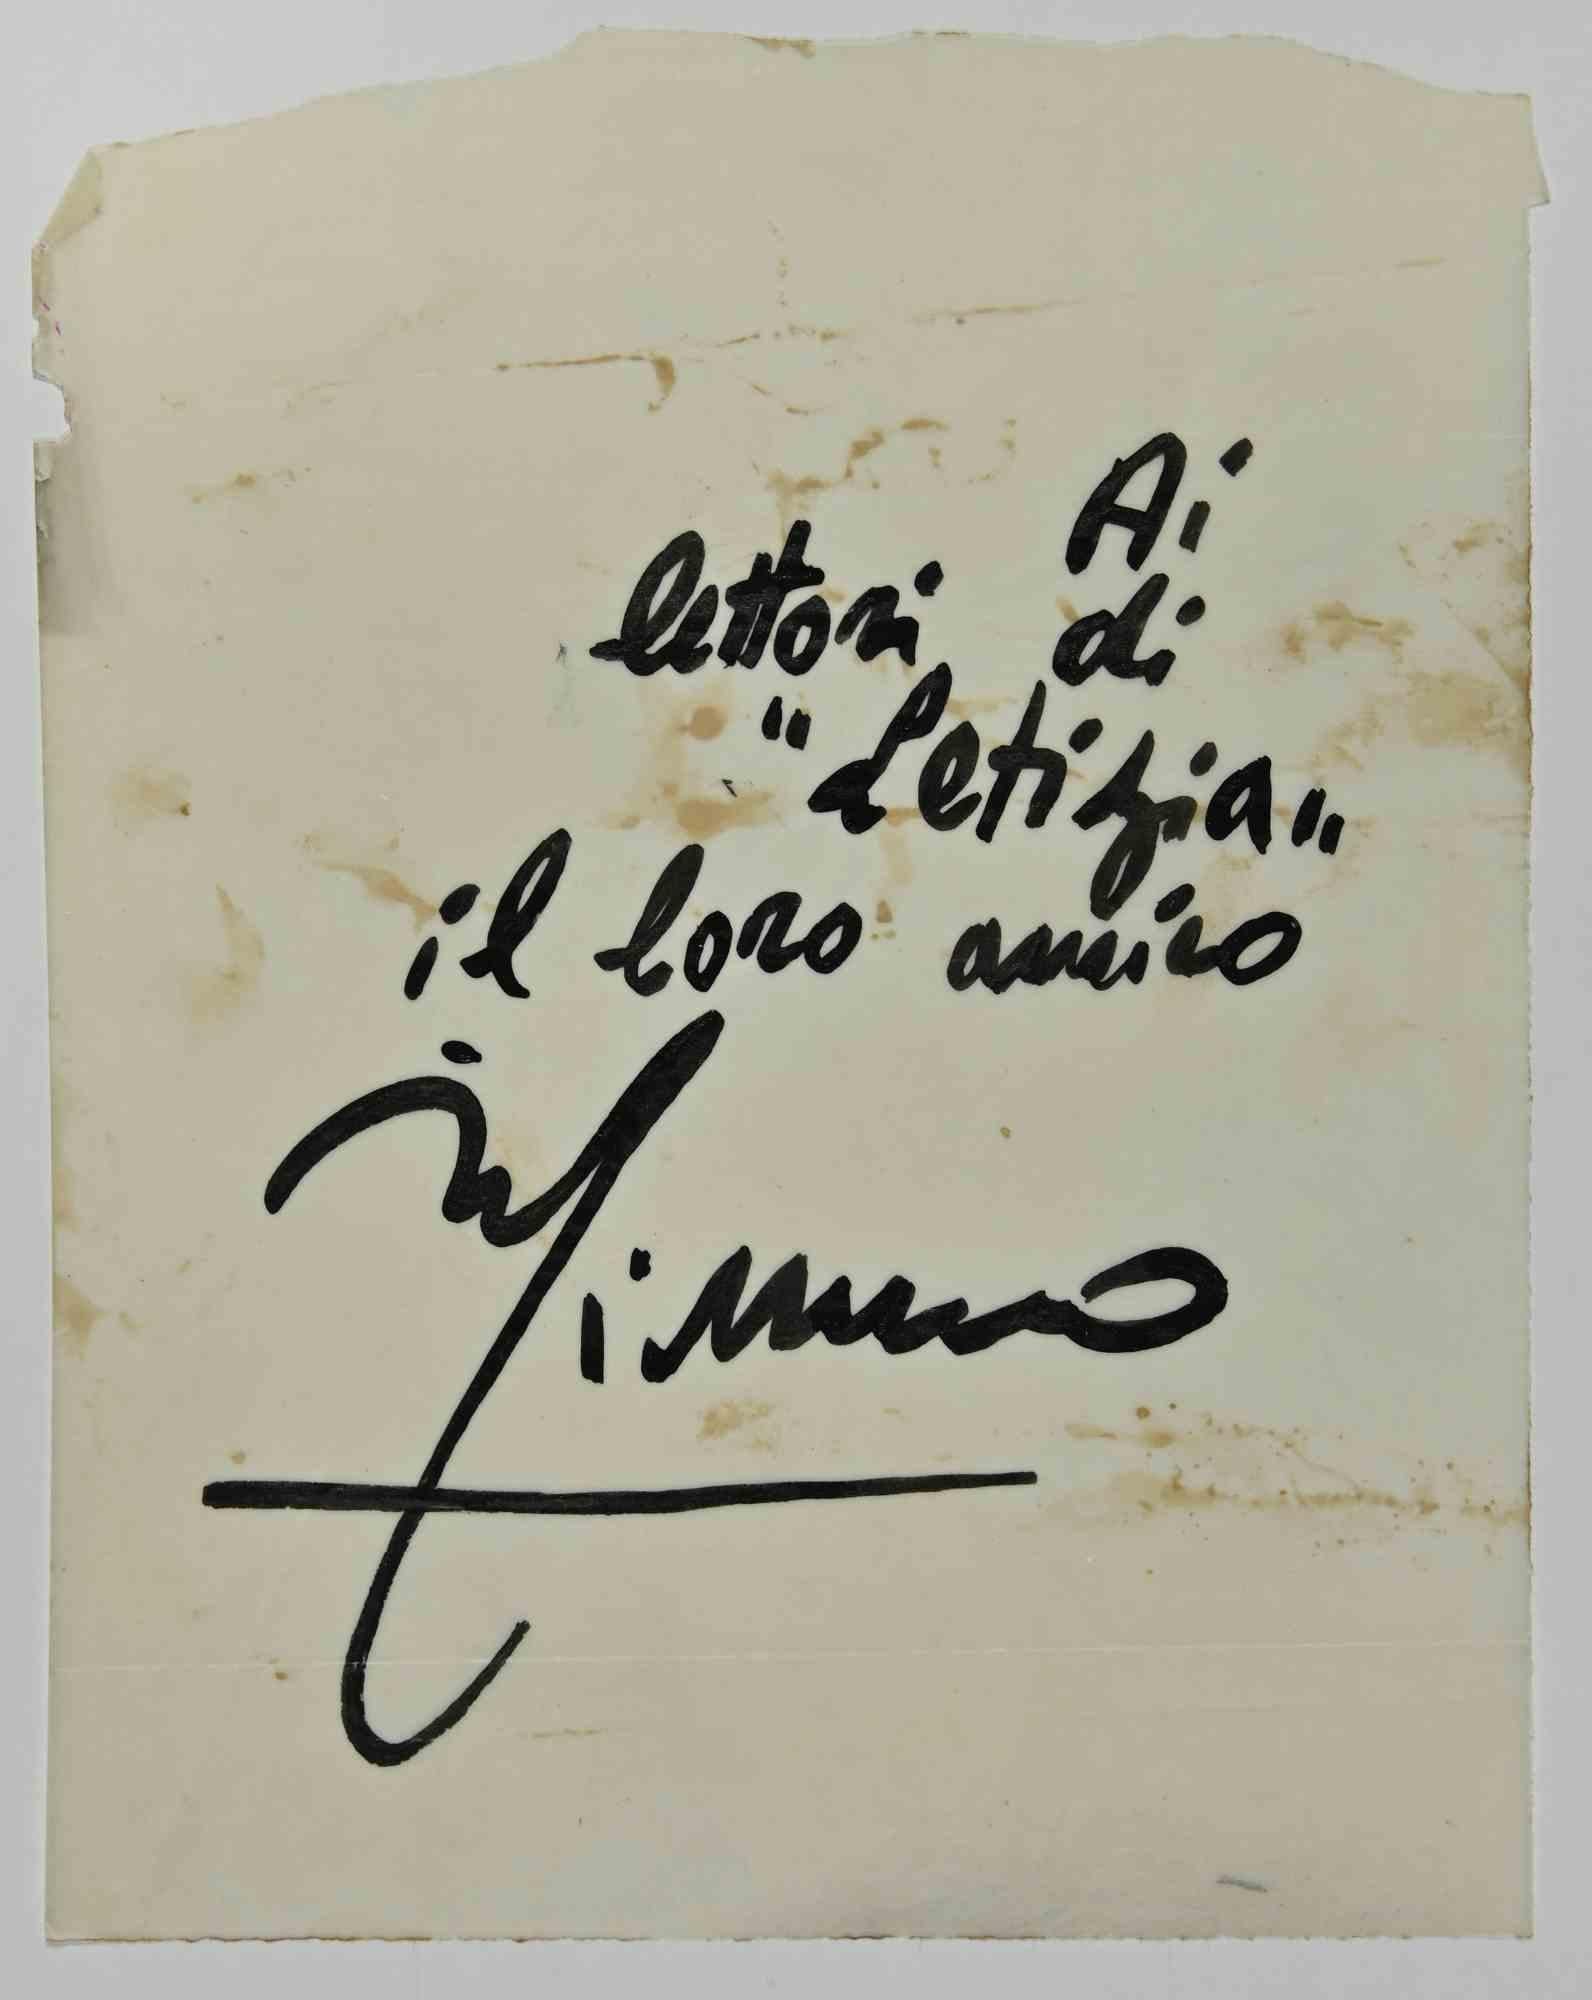 Ai
lettori di
"Letizia"
il loro amico
Mimmo